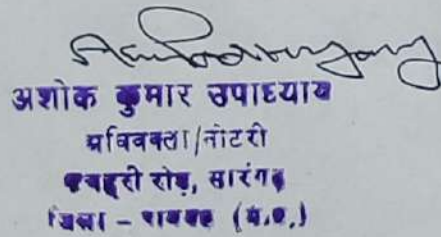 अशोक कुमार उपाध्याय
अधिवक्ता/नोटरी
कचहरी रोड़, सारंगढ़
जिला - रायगढ़ (म.प्र.)